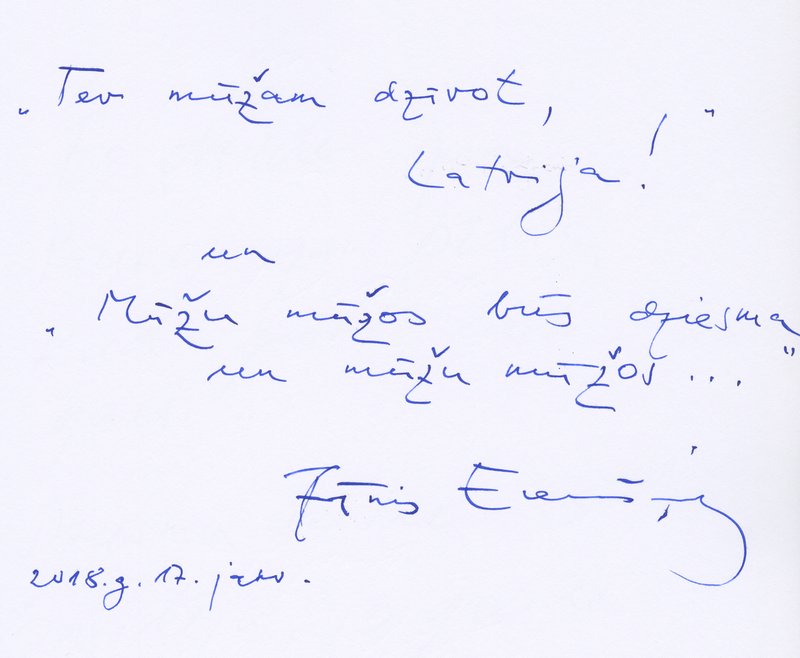 „Tev mūžam dzīvot,
Latvija!"
un
„Mūžu mūžos būs dziesma
un mūžu mūžos..."
Jānis Erenštreits
2018.g. 17. janv.